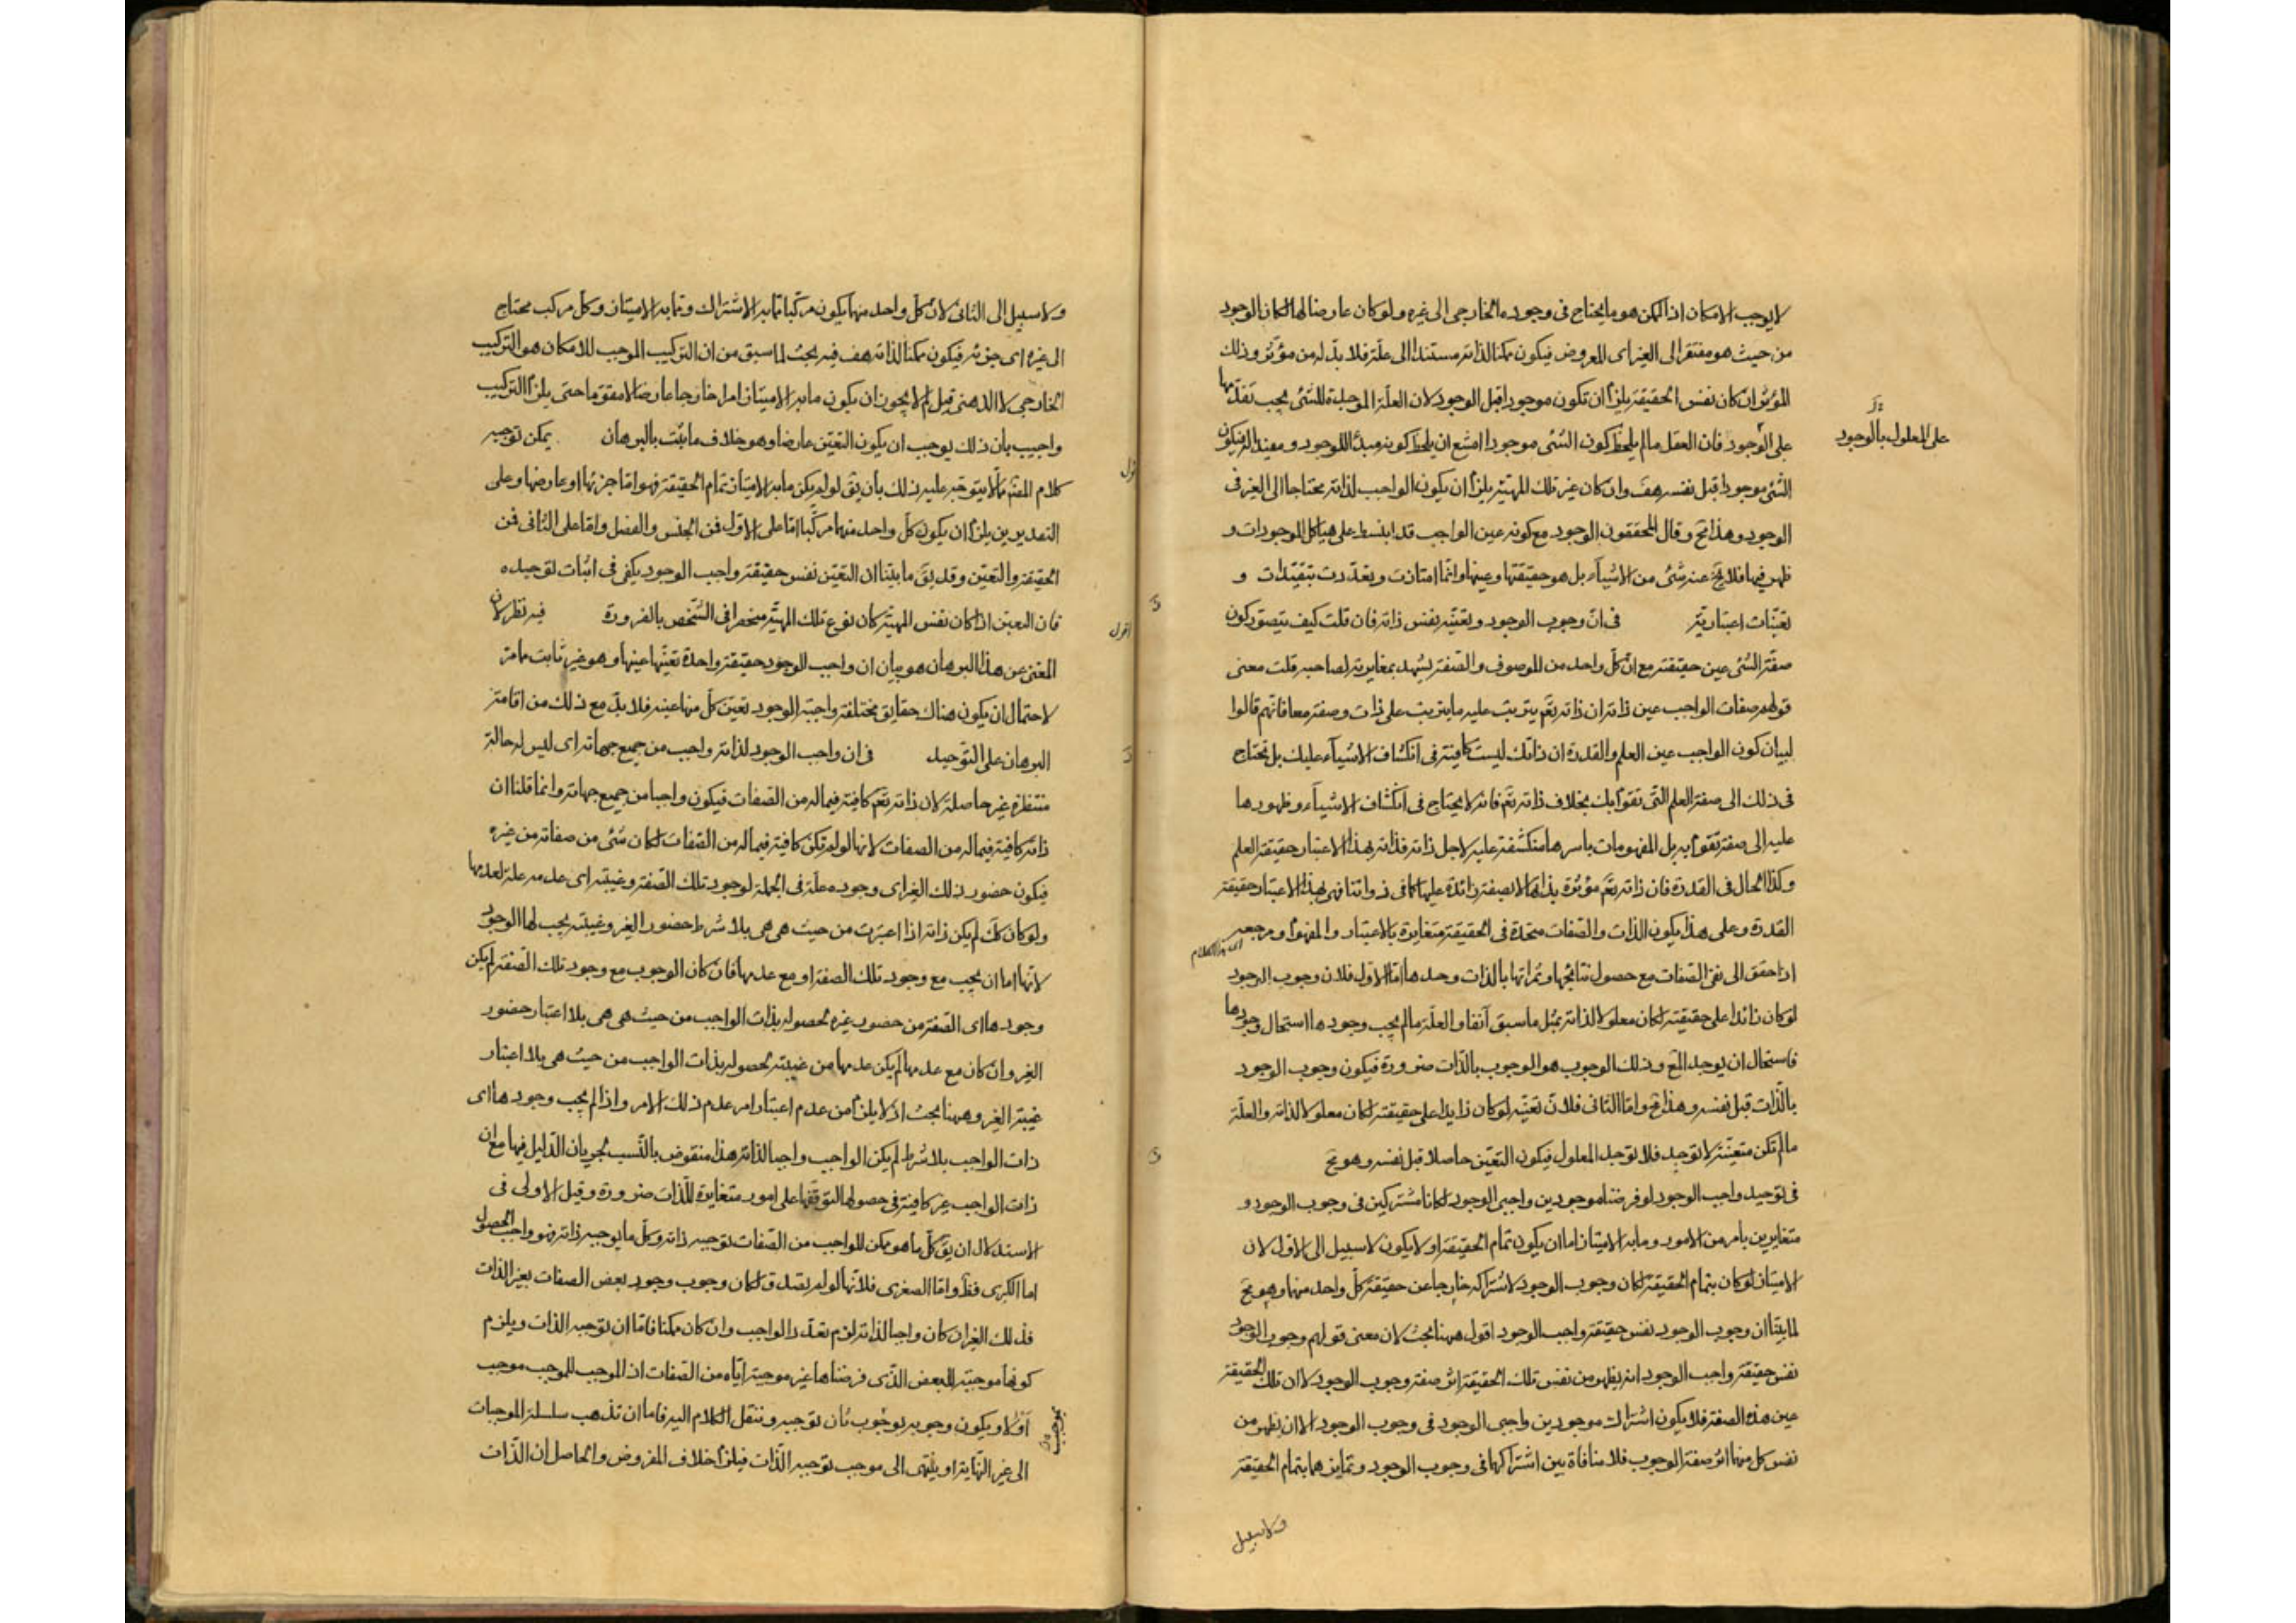 لا يوجب الامكان اذ الممكن هو ما يحتاج في وجوده الخارجى الى غيره ولو كان عارضا لها لكان الوجود
من حيث هو مفتقرا الى الغير اى المعروض فيكون ممكنا لذاته مستندا الى علة فلا بد له من مؤثر وذلك
المؤثر ان كان نفس الحقيقة يلزم ان تكون موجودا قبل الوجود لان العلة الموجدة للشئ يجب تقدمها
على المعلول بالوجود
على الوجود فان العقل ما لم يلحظ كون الشئ موجودا امتنع ان يلحظ كونه مبدأ للوجود ومفيدا له فيكون
الشئ موجودا قبل نفسه هف وان كان غير تلك المهية يلزم ان يكون الواجب لذاته محتاجا الى الغير فى
الوجود وهذا مح وقال المحققون الوجود مع كونه عين الواجب قد انبسط على هياكل الموجودات و
ظهر فيها فلا يخ عنه شئ من الاشياء بل هو حقيقتها وعينها وانما امتازت وتعددت بتقيدات و
تعينات اعتبارية فى ان وجوب الوجود وتعينه نفس ذاته فان قلت كيف يتصور كون
صفة الشئ عين حقيقته مع ان كل واحد من الموصوف والصفة يشهد بمغايرته لصاحبه قلت معنى
قولهم صفات الواجب عين ذاته ان ذاته تعم يترتب عليه ما يترتب على ذات وصفة معا فانهم قالوا
لبيان كون الواجب عين العلم والقدرة ان ذاتك ليست كافية فى انكشاف الاشياء عليك بل تحتاج
فى ذلك الى صفة العلم التى تقوم بك بخلاف ذاته تعم فانه لا يحتاج فى انكشاف الاشياء وظهورها
عليه الى صفة تقوم به بل المفهومات باسرها منكشفة عليه لاجل ذاته فذاته بهذا الاعتبار حقيقة العلم
وكذا الحال فى القدرة فان ذاته تعم مؤثرة بذاتها لا بصفة زائدة عليها كما فى ذواتنا فهى بهذا الاعتبار حقيقة
القدرة وعلى هذا يكون الذات والصفات متحدة فى الحقيقة متغايرة بالاعتبار والمفهوم ومرجعه
اى هذا الكلام
اذا حقق الى نفى الصفات مع حصول نتائجها وثمراتها بالذات وحدها اما الاول فلان وجوب الوجود
لو كان زائدا على حقيقته لكان معلولا لذاته بمثل ما سبق آنفا والعلة ما لم يجب وجودها استحال وجودها
فاستحال ان يوجد المع وذلك الوجوب هو الوجوب بالذات ضرورة فيكون وجوب الوجود
بالذات قبل نفسه وهذا مح واما الثانى فلان تعينه لو كان زايدا على حقيقته لكان معلولا لذاته والعلة
ما لم تكن متعينة لا توجد فلا توجد المعلول فيكون التعين حاصلا قبل نفسه وهو مح
فى توحيد واجب الوجود لو فرضنا موجودين واجبى الوجود لكانا مشتركين فى وجوب الوجود و
متغايرين بامر من الامور وما به الامتياز اما ان يكون تمام الحقيقة او لا يكون لا سبيل الى الاول لان
الامتياز لو كان بتمام الحقيقة لكان وجوب الوجود لاشتراكه خارجا عن حقيقة كل واحد منهما وهو مح
لما بينا ان وجوب الوجود نفس حقيقة واجب الوجود اقول ههنا بحث لان معنى قولهم وجوب الوجود
نفس حقيقة واجب الوجود انه يظهر من نفس تلك الحقيقة اثر صفة وجوب الوجود لا ان تلك الحقيقة
عين هذه الصفة فلا يكون اشتراك موجودين واجبى الوجود فى وجوب الوجود الا ان يظهر من
نفس كل منهما اثر صفة الوجوب فلا منافاة بين اشتراكهما فى وجوب الوجود وتمايزهما بتمام الحقيقة
ولا سبيل
ولا سبيل الى الثانى لان كل واحد منهما يكون مركبا مما به الاشتراك ومما به الامتياز وكل مركب محتاج
الى غيره اى جزئه فيكون ممكنا لذاته هف فيه بحث لما سبق من ان التركيب الموجب للامكان هو التركيب
الخارجى لا الذهنى قيل لم لا يجوز ان يكون ما به الامتياز امرا خارجا عارضا لا مقوما حتى يلزم التركيب
واجيب بان ذلك يوجب ان يكون التعين عارضا وهو خلاف ما يثبت بالبرهان يمكن توجيه
اقول
كلام المصم بما لا يتوجه عليه ذلك بان يق لو لم يكن ما به الامتياز تمام الحقيقة فهو اما جزئها او عارضها وعلى
التقديرين يلزم ان يكون كل واحد منهما مركبا اما على الاول فمن الجنس والفصل واما على الثانى فمن
الحقيقة والتعين وقد يق ما بينا ان التعين نفس حقيقة واجب الوجود يكفى فى اثبات توحيده
فان التعين اذا كان نفس المهية كان نوع تلك المهية منحصرا فى الشخص بالضرورة فيه نظر لان
اقول
المعنى من هذا البرهان هو بيان ان واجب الوجود حقيقة واحدة تعينها عينها وهو غير ثابت مما مر
لاحتمال ان يكون هناك حقايق مختلفة واجبة الوجود تعين كل منها عينه فلا بد مع ذلك من اقامة
البرهان على التوحيد فى ان واجب الوجود لذاته واجب من جميع جهاته اى ليس له حالة
منتظرة غير حاصلة لان ذاته تعم كافية فيما له من الصفات فيكون واجبا من جميع جهاته وانما قلنا ان
ذاته كافية فيما له من الصفات لانها لو لم تكن كافية فيما له من الصفات لكان شئ من صفاته من غيره
فيكون حضور ذلك الغير اى وجوده علة فى الجملة لوجود تلك الصفة وغيبته اى عدمه علة لعدمها
ولو كان كك لم يكن ذاته اذا اعتبرت من حيث هى هى بلا شرط حضور الغير وغيبته يجب لها الوجود
لانها اما ان يجب مع وجود تلك الصفة او مع عدمها فان كان الوجوب مع وجود تلك الصفة لم يكن
وجودها اى الصفة من حضور غيره لحصوله بذات الواجب من حيث هى هى بلا اعتبار حضور
الغير وان كان مع عدمها لم يكن عدمها من غيبته لحصوله بذات الواجب من حيث هى بلا اعتبار
غيبة الغير وههنا بحث اذ لا يلزم من عدم اعتبار امر عدم ذلك الامر واذا لم يجب وجودها اى
ذات الواجب بلا شرط لم يكن الواجب واجبا لذاته هذا منقوض بالنسب لجريان الدليل فيها مع ان
ذات الواجب غير كافية فى حصولها لتوقفها على امور متغايرة للذات ضرورة وقيل الاولى فى
الاستدلال ان يق كل ما هو ممكن للواجب من الصفات توجبه ذاته وكل ما يوجبه ذاته فهو واجب الحصول
اما الكبرى فظ واما الصغرى فلانها لو لم تصدق لكان وجوب وجود بعض الصفات بغير الذات
فذلك الغير ان كان واجبا لذاته لزم تعدد الواجب وان كان ممكنا فاما ان توجبه الذات ويلزم
كونها موجبة للبعض الذى فرضناها غير موجبة اياه من الصفات اذ الموجب للموجب موجب
أو لا ويكون وجوبه بوجوب ثان توجبه وننقل الكلام اليه فاما ان تذهب سلسلة الموجبات
بموجب
الى غير النهاية او ينتهى الى موجب توجبه الذات فيلزم خلاف المفروض والحاصل ان الذات